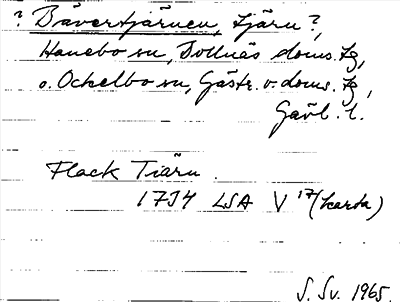 ? Bävertjärnen, tjärn?,
Hanebo sn, Bollnäs doms. tg,
o. Ockelbo sn, Gästr. v. doms. tg,
Gävl. l.
Flack Tiärn.
1734 LSA V 17 (karta)
S. Sv. 1965.